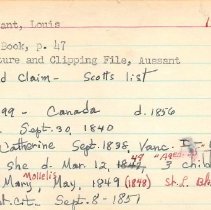 ant, Louis
Book, p. 47
ture and Clipping File, Aussant
d Claim - Scotts list
99 - Canada d. 1856
Sept. 30, 1840
Catherine Sept. 1838, Vanc.
she d. Mar. 12, 1849 49 "AGED 30" 3 child
Mollelis
Mary, May, 1849 (1848) St. L. Bk
t. Cit. Sept. 8 - 1851